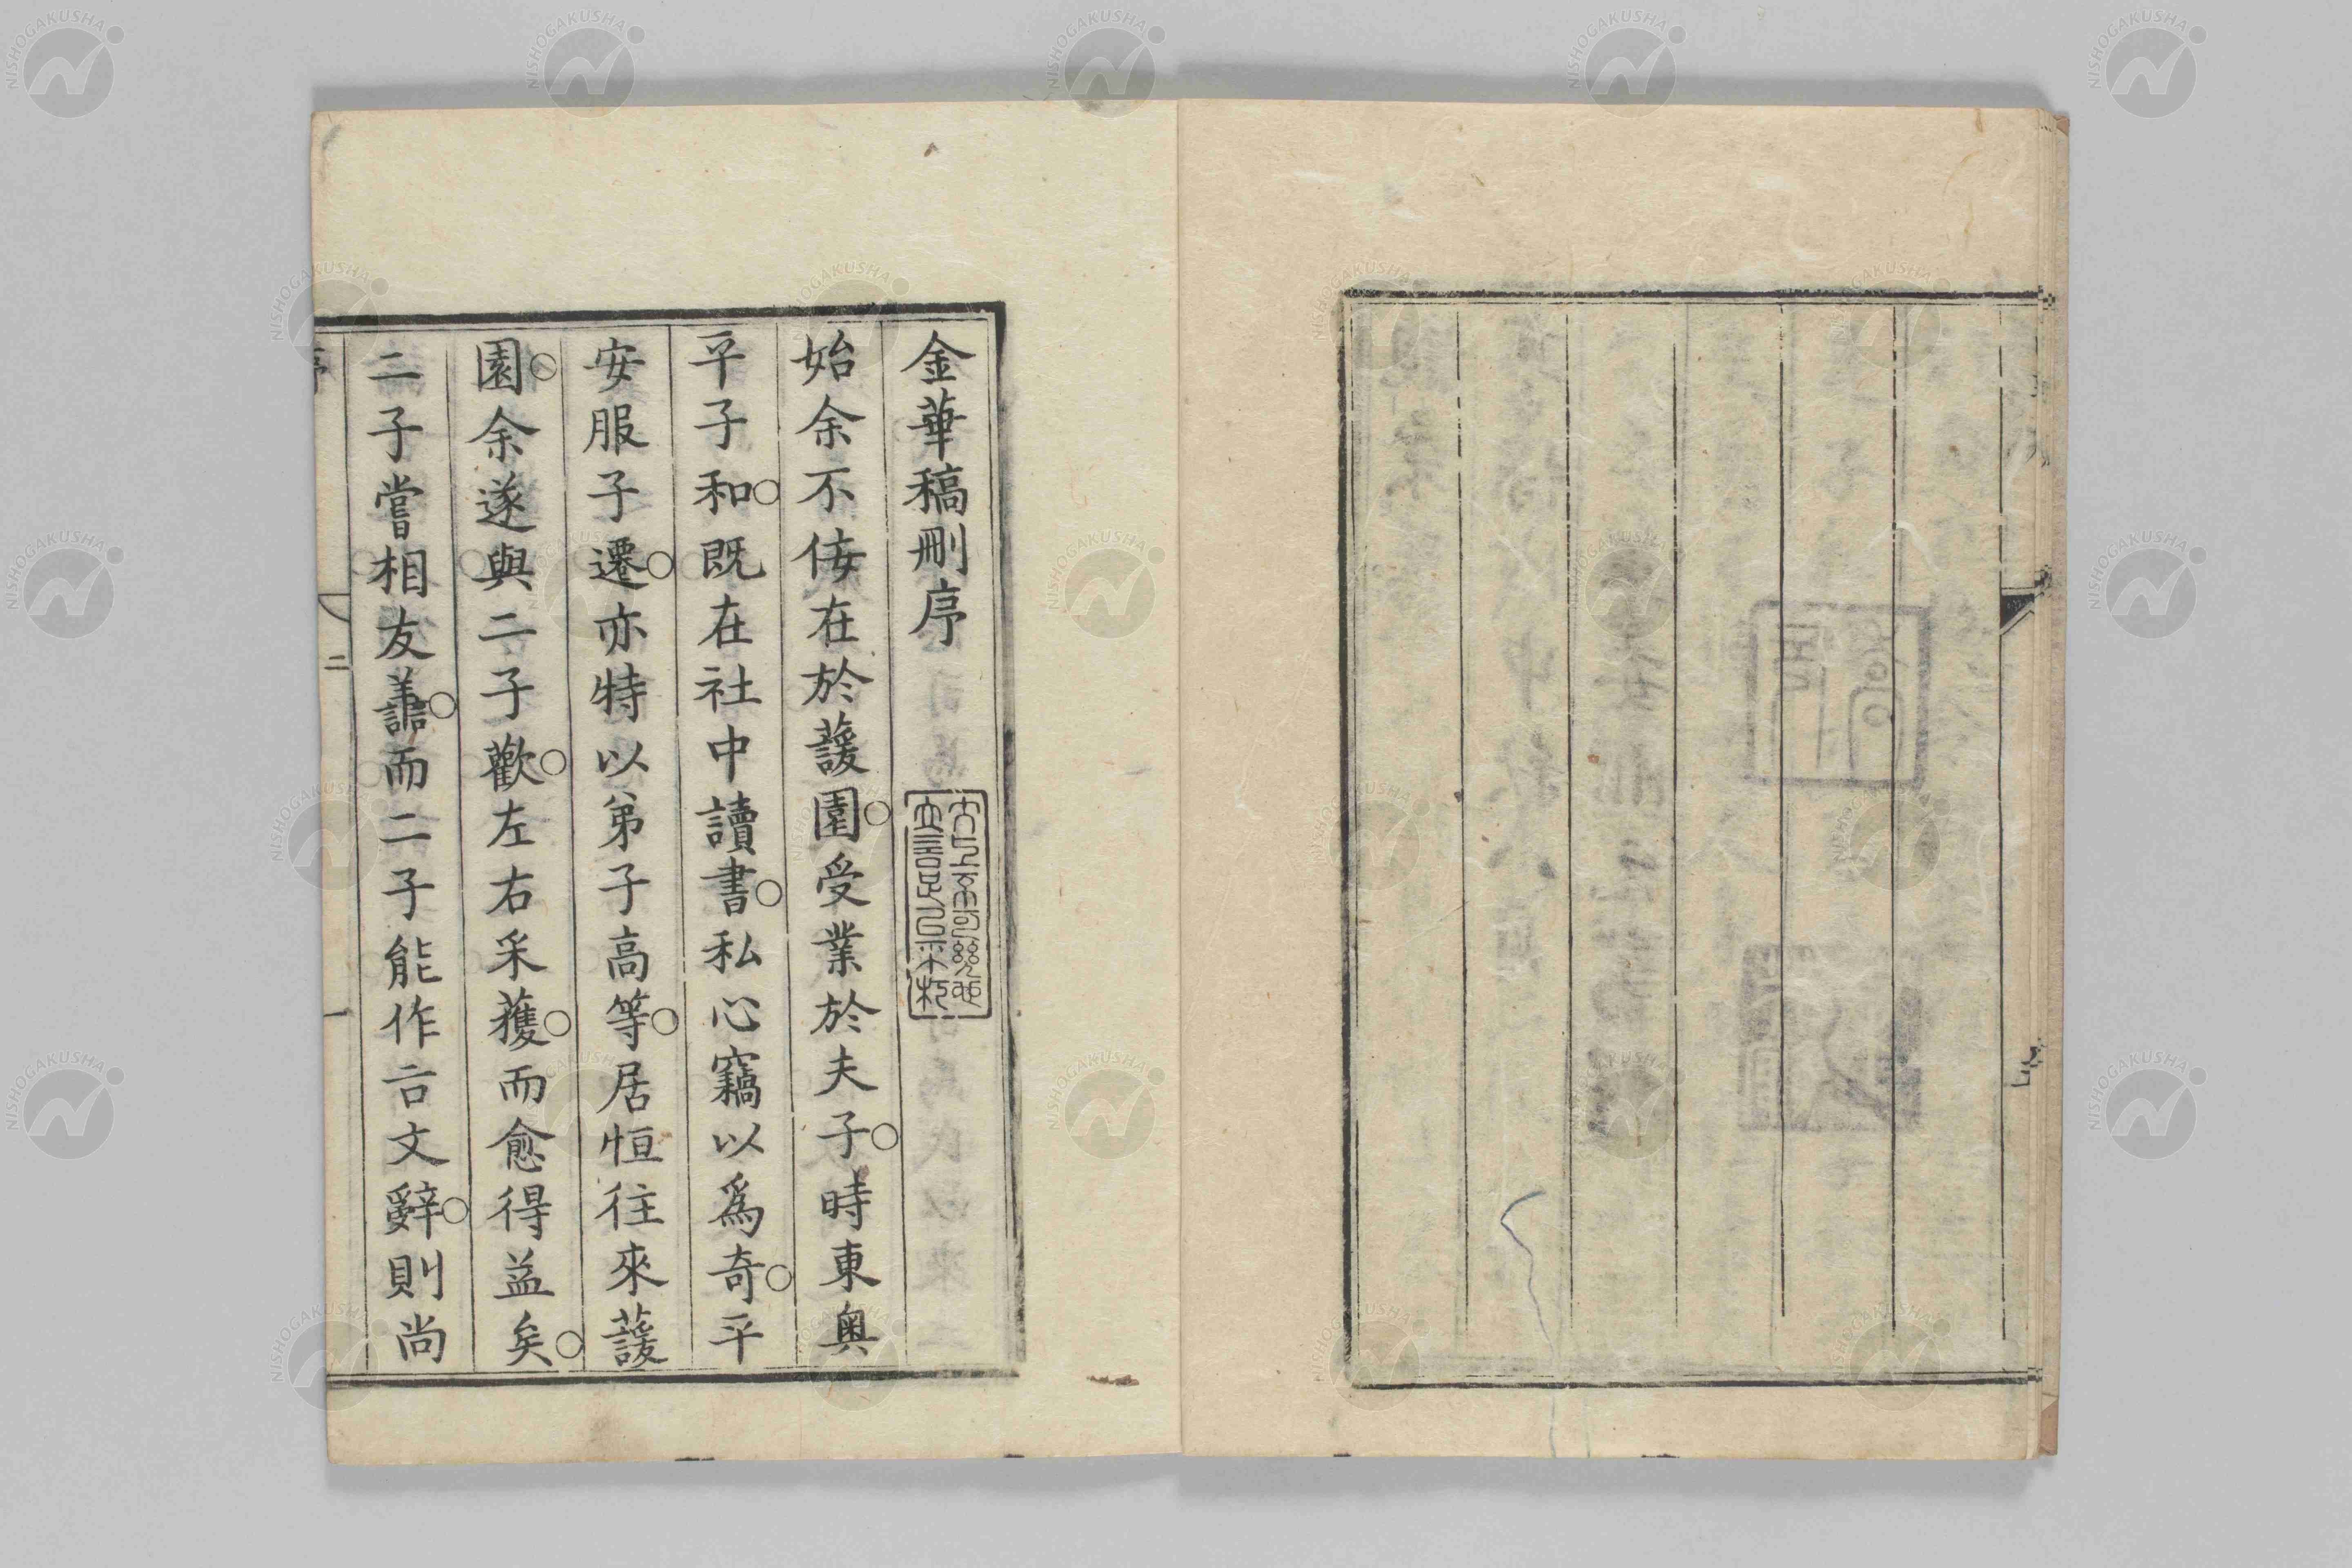 金華稿刪序
始余不侫在於蘐園○受業於夫子○時東奥
平子和○既在社中讀書○私心竊以爲奇○平
安服子遷○亦特以弟子高等○居恒往來蘐
園○余遂與二子歡○左右采獲○而愈得益矣○
二子嘗相友譱○而二子能作古文辭○則尚
二
一
NISHOGAKUSHA